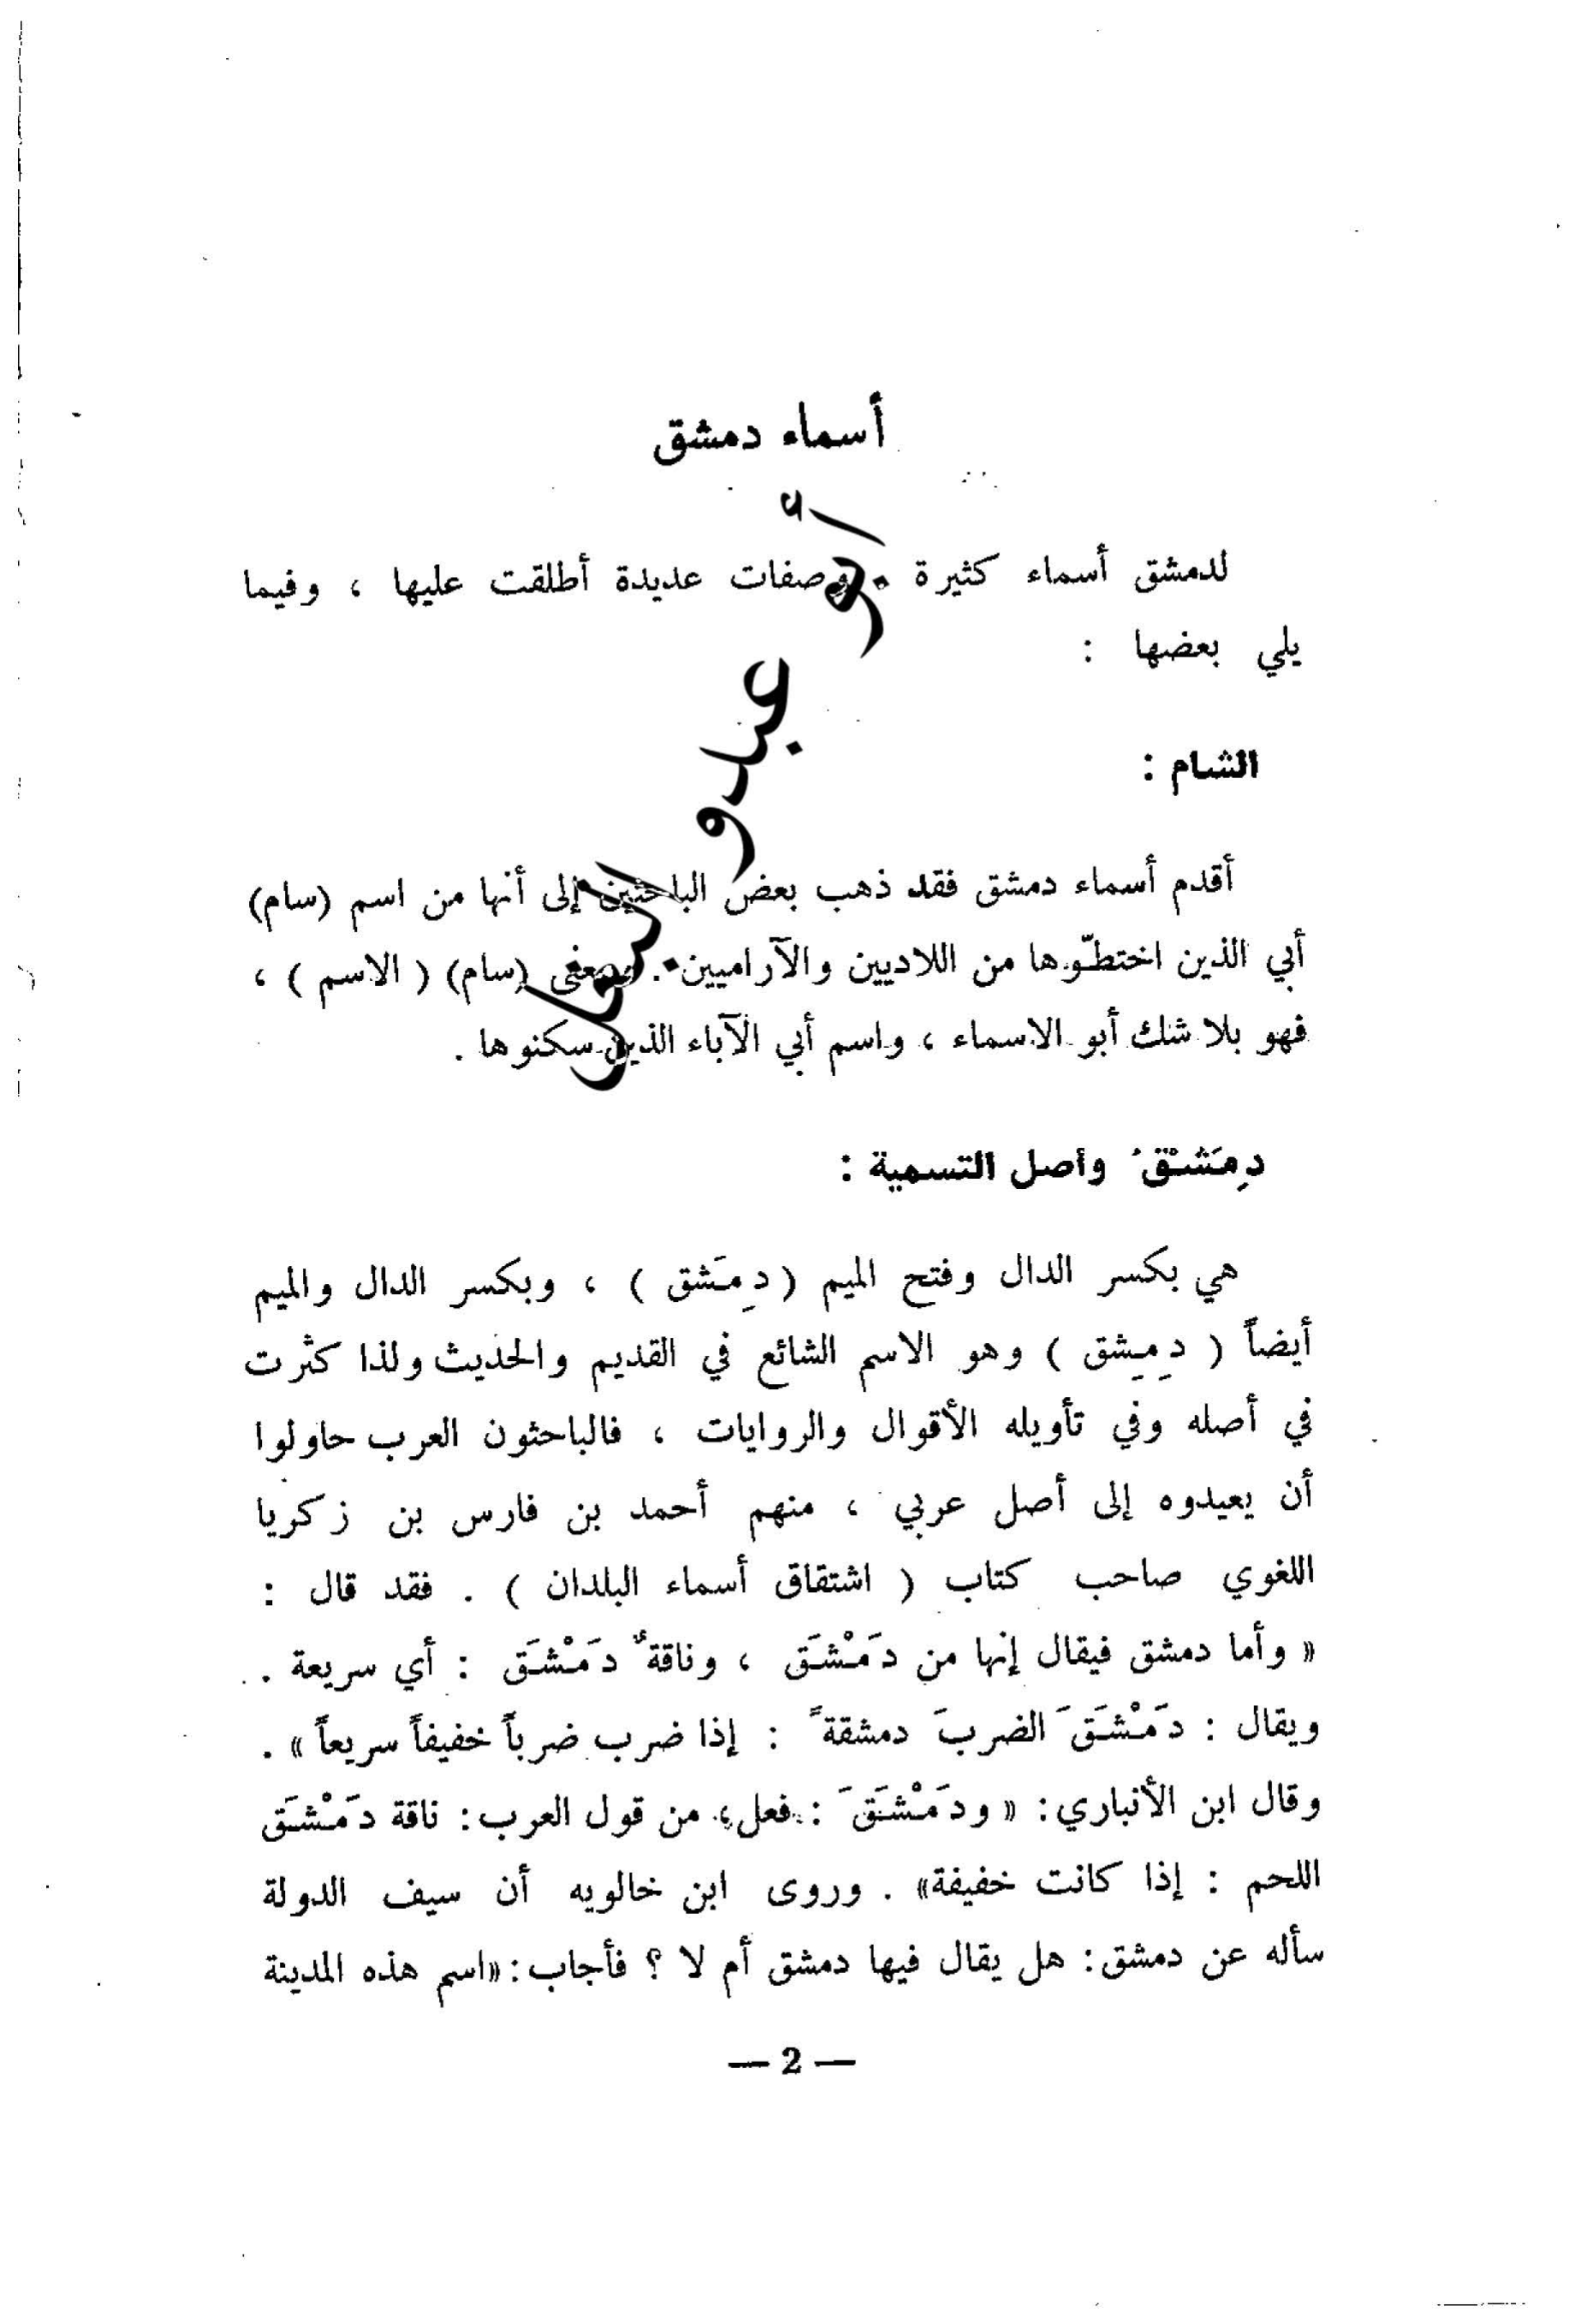 أسماء دمشق
لدمشق أسماء كثيرة وصفات عديدة أطلقت عليها ، وفيما
يلي بعضها :
الشام :
أقدم أسماء دمشق فقد ذهب بعض الباحثين إلى أنها من اسم (سام)
أبي الذين اختطّوها من اللاديين والآراميين . ومعنى (سام) ( الاسم ) ،
فهو بلا شك أبو الاسماء ، واسم أبي الآباء الذين سكنوها .
دِمَشْقُ وأصل التسمية :
هي بكسر الدال وفتح الميم ( دِمَشق ) ، وبكسر الدال والميم
أيضاً ( دِمِشق ) وهو الاسم الشائع في القديم والحديث ولذا كثرت
في أصله وفي تأويله الأقوال والروايات ، فالباحثون العرب حاولوا
أن يعيدوه إلى أصل عربي ، منهم أحمد بن فارس بن زكريا
اللغوي صاحب كتاب ( اشتقاق أسماء البلدان ) . فقد قال :
« وأما دمشق فيقال إنها من دَمْشَق ، وناقةٌ دَمْشَق : أي سريعة .
ويقال : دَمْشَقَ الضربَ دمشقةً : إذا ضرب ضرباً خفيفاً سريعاً » .
وقال ابن الأنباري : « ودَمْشَقَ : فعل ، من قول العرب : ناقة دَمْشَق
اللحم : إذا كانت خفيفة» . وروى ابن خالويه أن سيف الدولة
سأله عن دمشق : هل يقال فيها دمشق أم لا ؟ فأجاب : «اسم هذه المدينة
— 2 —
أبو عبدو